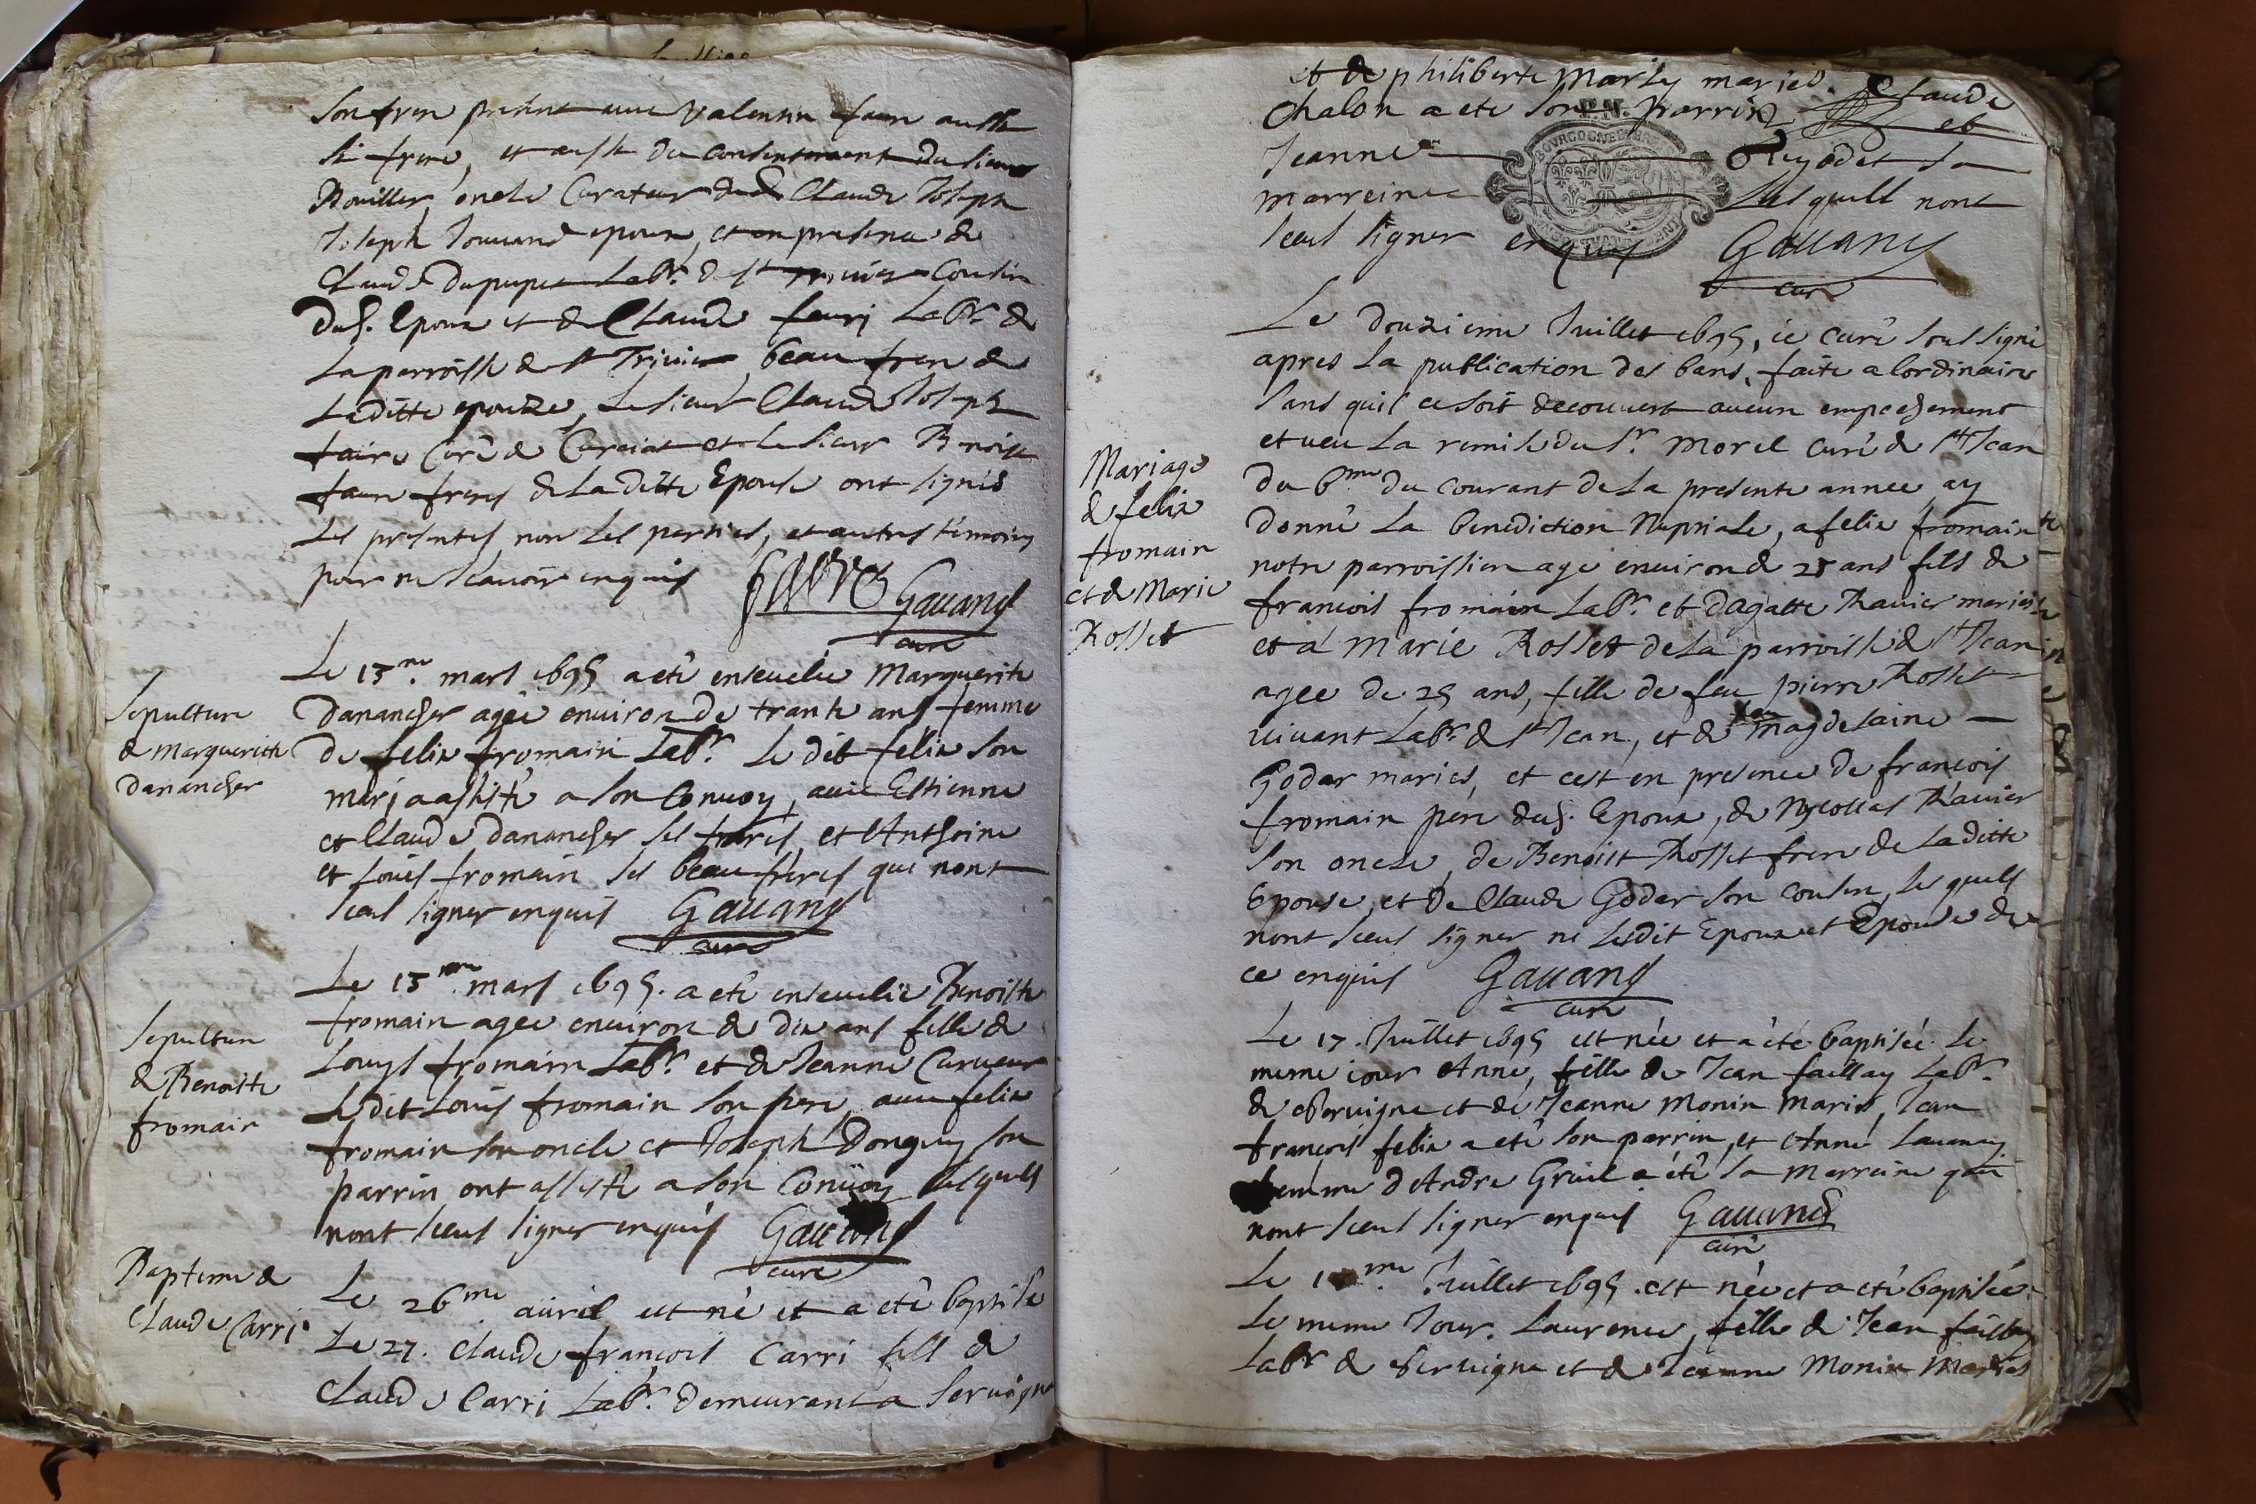 son frere present avec Valentin faure aussi
st frere, et aussi du consentement du sieur
Rouiller oncle Curateur dud Claude Joseph
Joseph Jouvand epoux, et en presence de
Claude Dupupet Labr. de st Trivier Cousin
dud. Epoux et de Claude feuri Labr. de
La parroisse de st Trivier beau frere de
Laditte epouze, Le sieur Claude Joseph
faure Curé de Curciat et le sieur Benoist
faure freres de La ditte Epouse ont signés
Les presentes non Les parties, et autres témoins
pour ne scavoir enquis faure Gavand
curé
Sepulture
de Marguerite
Danancher
Le 15me. mars 1695 a eté ensevelie Marguerite
Danancher agée environ de trante ans femme
de felix fromain Labr. Le dit felix son
mari a assisté a son Convoy, avec Estienne
et Claude Danancher ses freres, et Anthoine
et Louis fromain ses beaufreres qui nont
sceus signer enquis Gavand
curé
Sepulture
de Benoitte
fromain
Le 15me mars 1695. a eté ensevelie Benoiste
fromain agee environ de dix ans fille de
Louys fromain Labr. et de Jeanne Carueur
Ledit Louis fromain son pere, avec felix
fromain son oncle et Joseph Donguy son
parrin ont assisté a son Convoy lesquels
nont sceus signer enquis Gavand
curé
Bapteme de
Claude Carri
Le 26me avril est né et a eté baptisé
Le 27. Claude françois Carri fils de
Claude Carri Labr. demeurant a Servigna
et de philiberte Marly mariés. Claude
Chalon a eté son parrin et
Jeanne Guyodet sa
marreine lesquels nont
sceus signer enquis Gavand
curé
Mariage
de felix
fromain
et de Marie
Rosset
Le douzieme Juillet 1695, ie curé soussigné
apres La publication des bans, faite a lordinaire
sans quil ce soit decouvert aucun empechement
et veu La remise du Sr. Morel curé de st Jean
du 6me du courant de La presente annee, ay
donné La benediction Nuptiale, a felix fromain
notre parroissien agé environ de 28 ans fils de
francois fromain Labr. et dagatte Ravier mariés
et a Marie Rosset de La parroisse de st Jean
agee de 25 ans, fille de feu pierre Rosset
vivant Labr. de st Jean, et de feu magdelaine
Godar mariés, et cest en presence de francois
fromain pere dud. Epoux, de Nycollas Ravier
son oncle, de Benoist Rosset frere de La ditte
Epouse, et de Claude Godar son cousin, les quels
nont sceus signer ni Lesdit Epoux et Epouse de
ce enquis Gavand
curé
Le 17. Juillet 1695 est née et a été baptisée le
meme iour Anne, fille de Jean faillay Labr.
de Servigna et de Jeanne Monin Mariés, Jean
françois felix a eté son parrin, et Anne
femme dAndre Gruel a été sa Marreine qui
nont sceus signer enquis Gavand
curé
Le me. Juillet 1695. est née et a eté baptisée
Le meme Jour. Laurence, fille de Jean faillay
Labr de Servigna et de Jeanne Monin Mariés